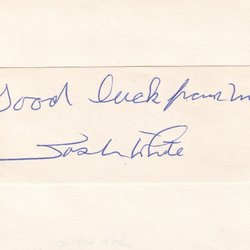 Good luck from
Josh White